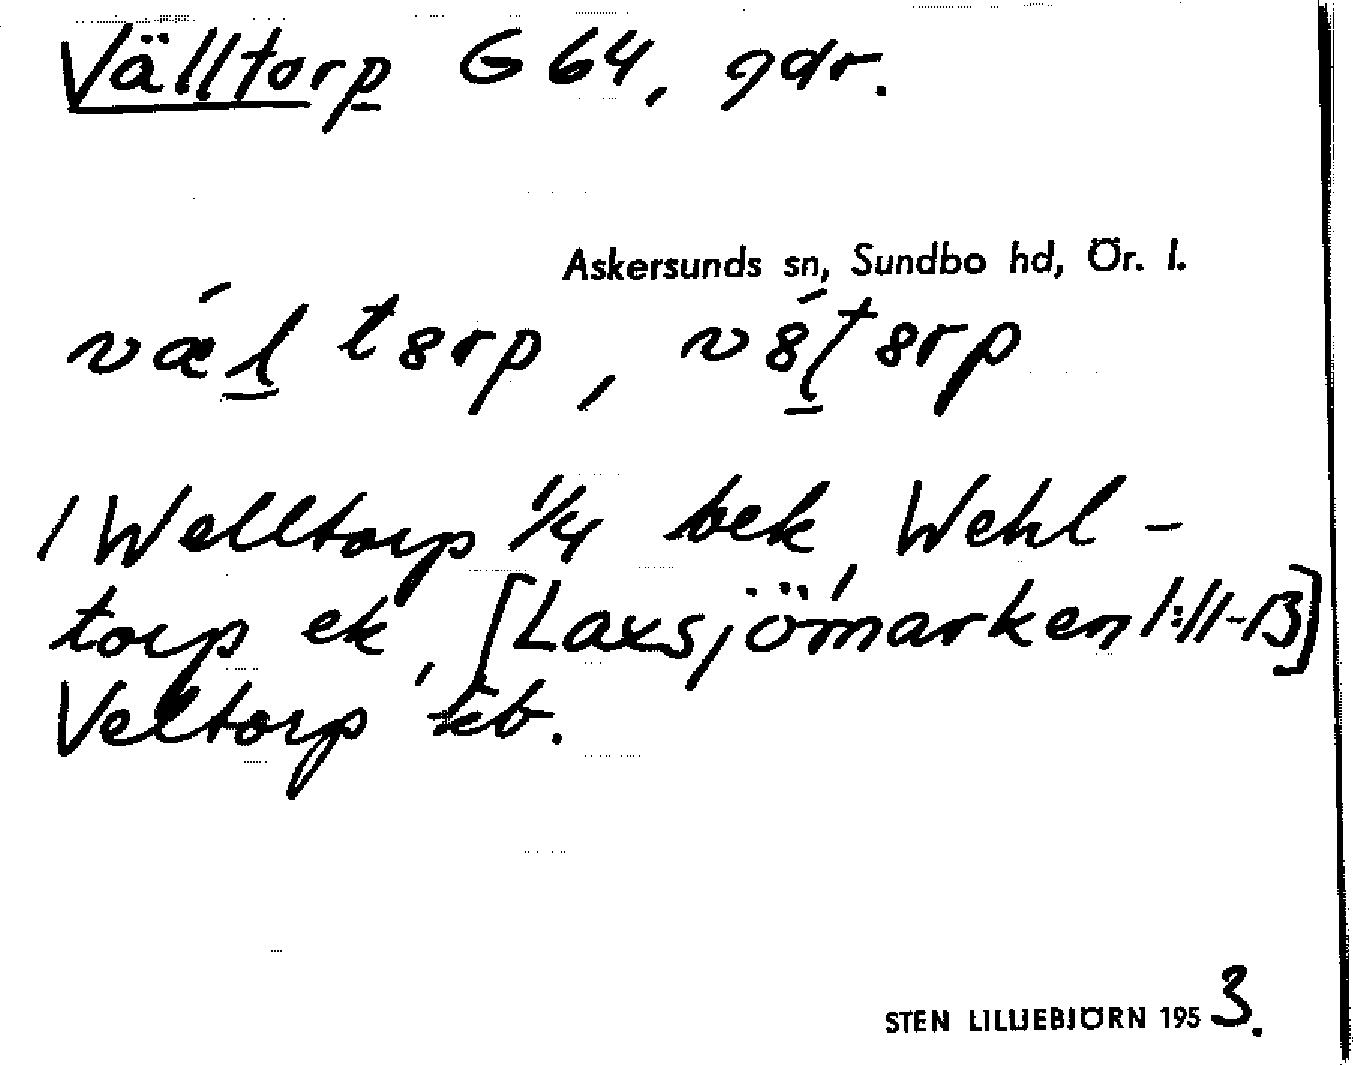 Välltorp G 64, gdr.
Askersunds sn, Sundbo hd, Ör. l.
vǽ̱l tɞrp, vɞ́ḻtɞrp
/ Welltorp 1/4 bek, Wehl-
torp ek, [Laxsjömarken 1:11-13]
Veltorp kb.
STEN LILLIEBJÖRN 1953.